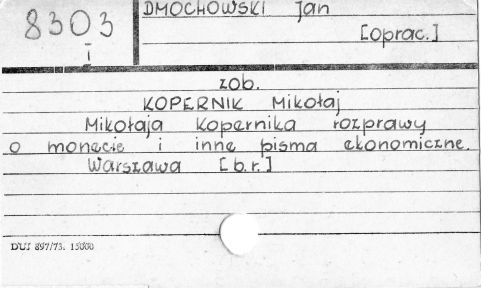 8303
I
DMOCHOWSKI Jan
[oprac.]
zob.
KOPERNIK Mikołaj
Mikołaja Kopernika rozprawy
o monecie i inne pisma ekonomiczne.
Warszawa [b.r.]
DUJ 897/73. 15000